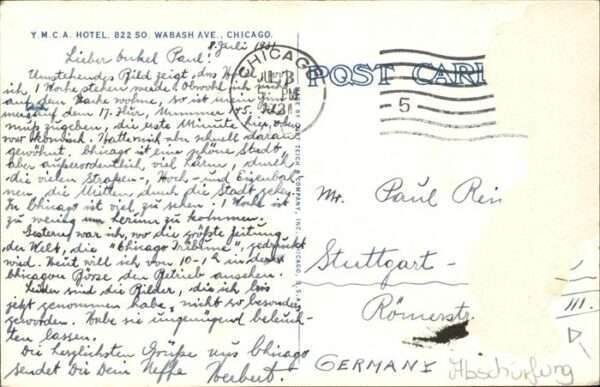 Y.M.C.A. HOTEL, 822 SO. WABASH AVE., CHICAGO.
8. Juli 1931
Lieber Onkel Paul!
Umstehendes Bild zeigt, das Hotel
ich 1 Woche stehen werde. Obwohl ich
auf dem Dache wohne, so ist mein Zim
mer auf dem 17. Flur, Nummer
muß zugeben, die erste Minute hier oben
war komisch. Hatte mich aber schnell daran
gewöhnt. Chicago ist eine schöne Stadt
aber außerordentlich viel Lärm, durch
die vielen Straßen- Hoch- und Eisenbah-
nen, die Mitten durch die Stadt gehen.
In Chicago ist viel zu sehen. 1 Woche ist
zu wenig um herum zu kommen.
Gestern war ich, wo die größte Zeitung
der Welt, die "Chicago Tribune", gedruckt
wird. Heut will ich von 10-1h in der
Chicagoer Börse den Betrieb ansehen.
Leider sind die Bilder, die ich bis
jetzt genommen habe, nicht so besonders
geworden. Habe sie ungenügend beleuch-
ten lassen.
Die herzlichsten Grüße aus Chicago
sendet Dir Dein Neffe Herbert.
CHICAGO
JUL 8
PM
1931
5
POST CARD
Mr. Paul Rei
Stuttgart-
Römerstr
GERMANY
III.
Abschürfung